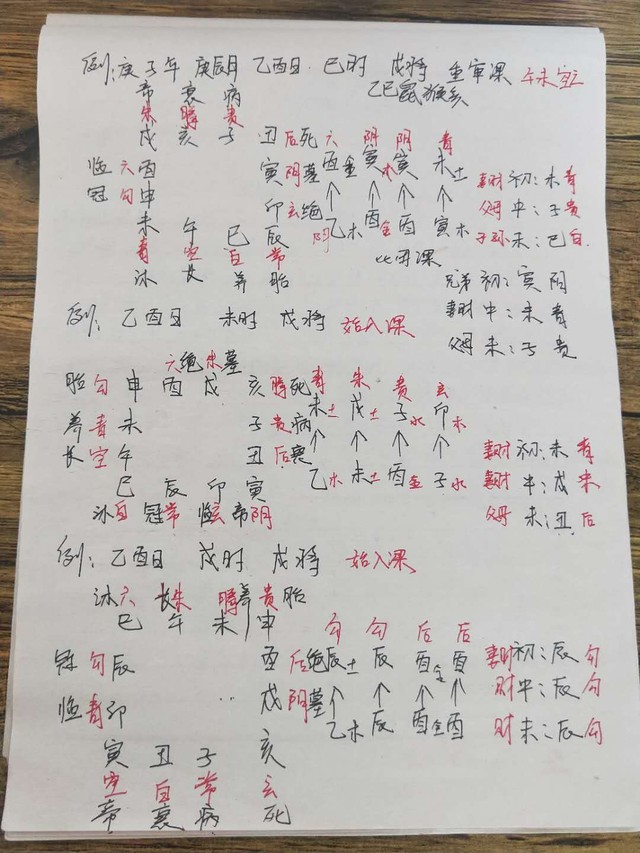 例:庚子年 庚辰月 乙酉日 巳时 戌将 重审课 午未空亡
帝 衰 病 乙巳鼠猴乡
朱 螣 贵
戌 亥 子 丑后死 六 阴 阴 青
临 六酉 寅阴墓 酉金 寅木 寅 未土 妻财 初:未青
冠 勾申 卯玄绝 ↑ ↑ ↑ ↑ 父母 中:子贵
未 午 巳 辰 阴 乙木 酉金 酉 寅木 子孙 末:巳白
青 空 白 常 比用课
沐 长 养 胎 兄弟 初:寅阴
妻财 中:未青
例:乙酉日 未时 戌将 始入课 父母 末:子贵
六绝朱墓
胎 勾 申 酉 戌 亥螣死 青 朱 贵 玄
养 青 未 子贵病 未土 戌土 子水 卯木
长 空 午 丑后衰 ↑ ↑ ↑ ↑ 妻财 初:未青
巳 辰 卯 寅 乙木 未土 酉金 子水 妻财 中:戌朱
沐白 冠常 临玄 帝阴 父母 末:丑后
例:乙酉日 戌时 戌将 始入课
沐六 长朱 螣养 贵胎
巳 午 未 申 勾 勾 后 后
冠 勾辰 酉后绝 辰土 辰 酉金 酉 妻财 初:辰勾
临 青卯 戌阴墓 ↑ ↑ ↑ ↑ 财 中:辰勾
乙木 辰 酉金 酉 财 末:辰勾
寅 丑 子 亥
空 白 常 玄
帝 衰 病 死